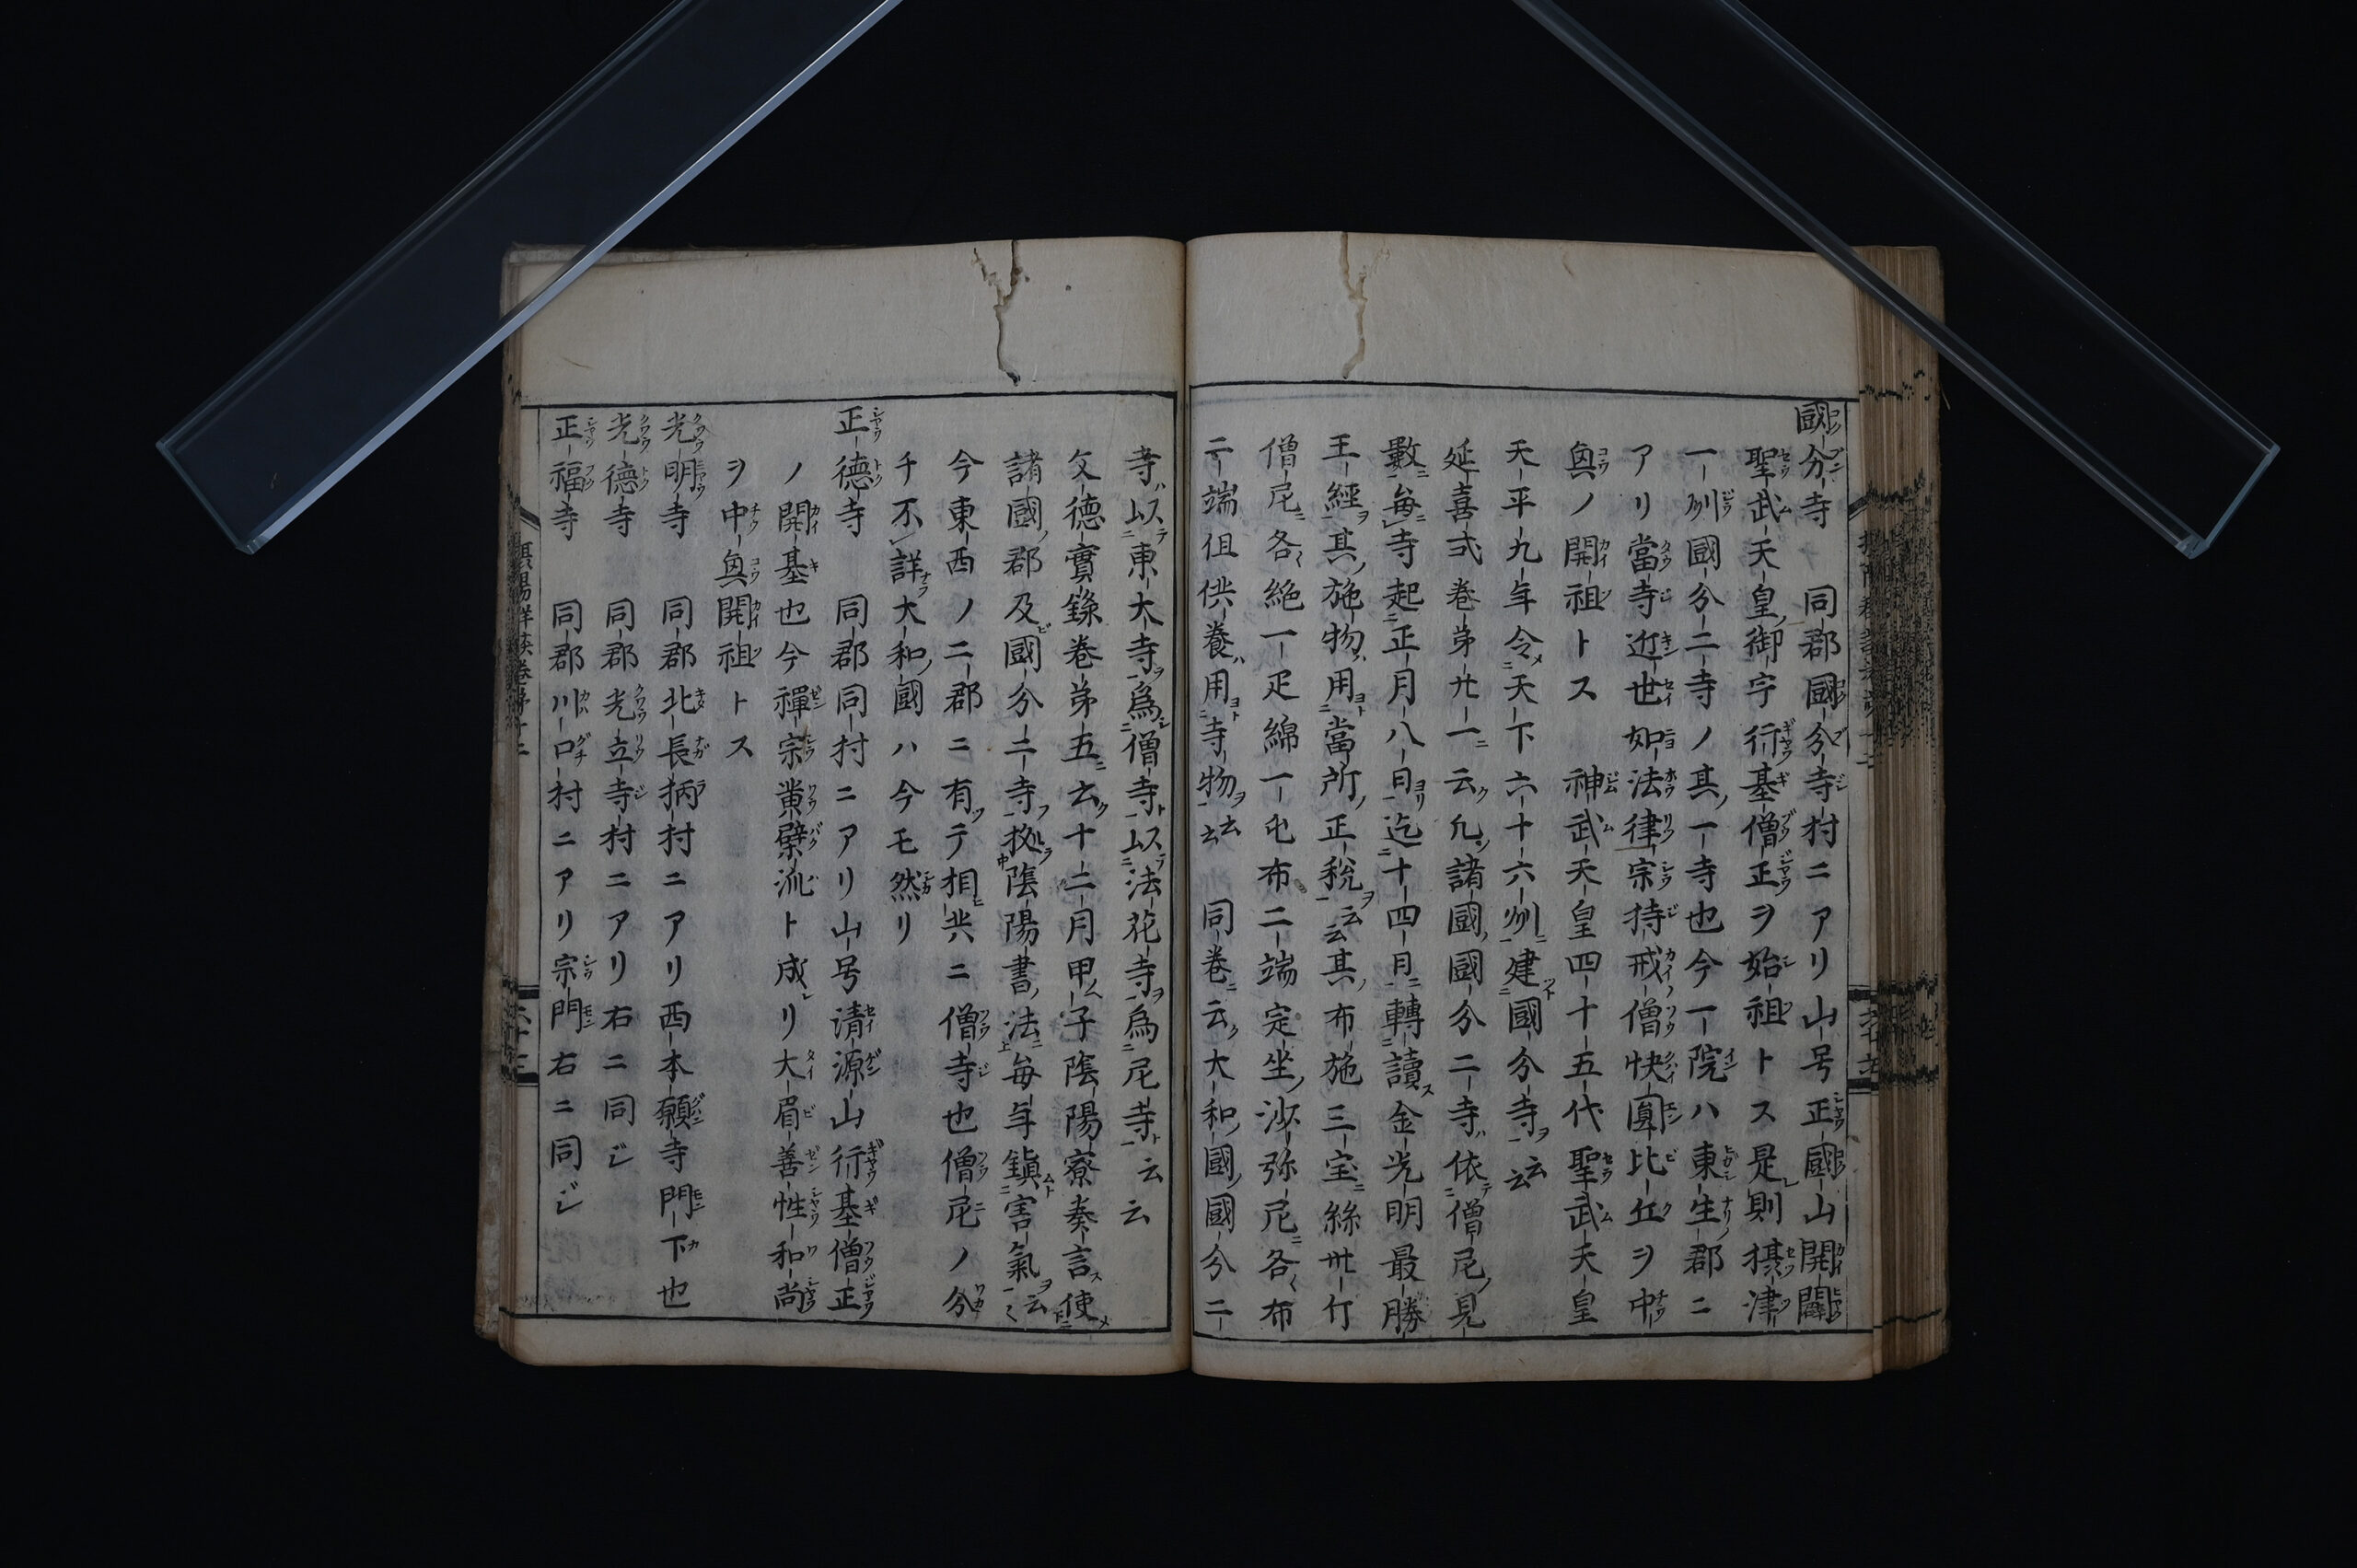 國分寺　同郡國分寺村ニアリ山号正國山開闢
聖武天皇御宇行基僧正ヲ始祖トス是則摂津
一州國分二寺ノ其一寺也今一院ハ東生郡ニ
アリ當寺近世如法律宗持戒僧快圓比丘ヲ中
興ノ開祖トス　神武天皇四十五代聖武天皇
天平九年令天下六十六州建國分寺云云
延喜式巻第廿一云凢諸國國分二寺依僧尼見
數毎寺起正月八日迄十四日轉讀金光明最勝
王經其施物用當所正税云云其布施三宝絲卅斤
僧尼各絁一疋綿一屯布二端定坐沙弥尼各布
二端但供養用寺物云云　同巻云大和國國分二
寺以東大寺爲僧寺以法花寺爲尼寺云云
文德實錄巻第五云十二月甲子陰陽寮奏言使
諸國郡及國分二寺拠陰陽書法毎年鎮害氣云云
今東西ノ二郡ニ有テ相共ニ僧寺也僧尼ノ分
チ不詳大和國ハ今モ然リ
正德寺　同郡同村ニアリ山号清源山行基僧正
ノ開基也今禪宗黄檗流ト成リ大眉善性和尚
ヲ中興開祖トス
光明寺　同郡北長柄村ニアリ西本願寺門下也
光德寺　同郡光立寺村ニアリ右ニ同じ
正福寺　同郡川口村ニアリ宗門右ニ同じ